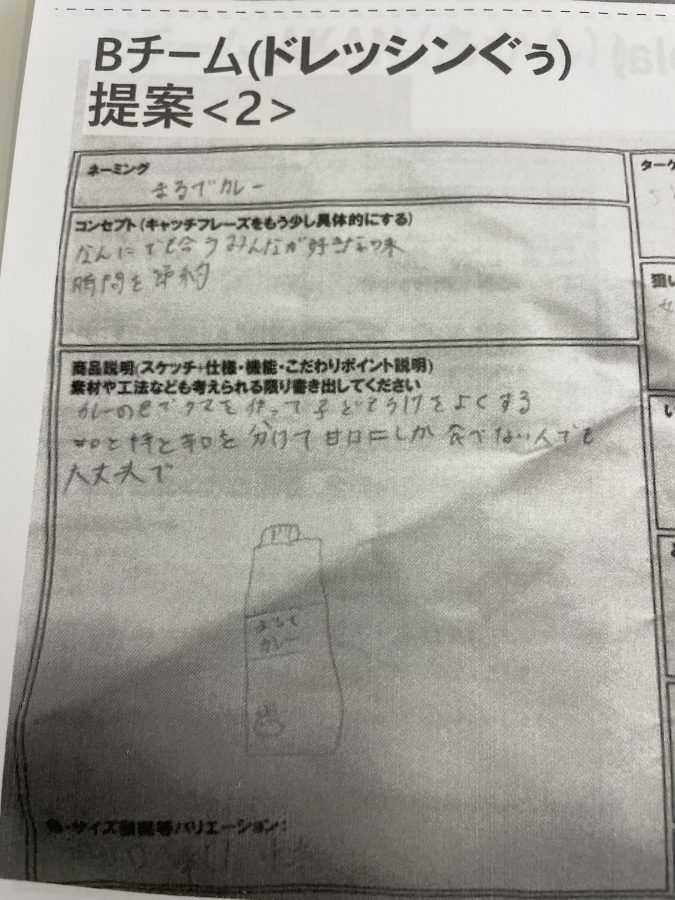 Bチーム(ドレッシンぐぅ)
提案<2>
ネーミング
まるでカレー
コンセプト(キャッチフレーズをもう少し具体的にする)
なんにでも合うみんなが好きな味
時間を節約
商品説明(スケッチ+仕様・機能・こだわりポイント説明)
素材や工法なども考えられる限り書き出してください
カレーの 作って子どもうけをよくする
辛口を分けて甘口にしか食べない人でも
大丈夫で
まるで
カレー
色・サイズ展開等バリエーション:
ターゲ
狙い